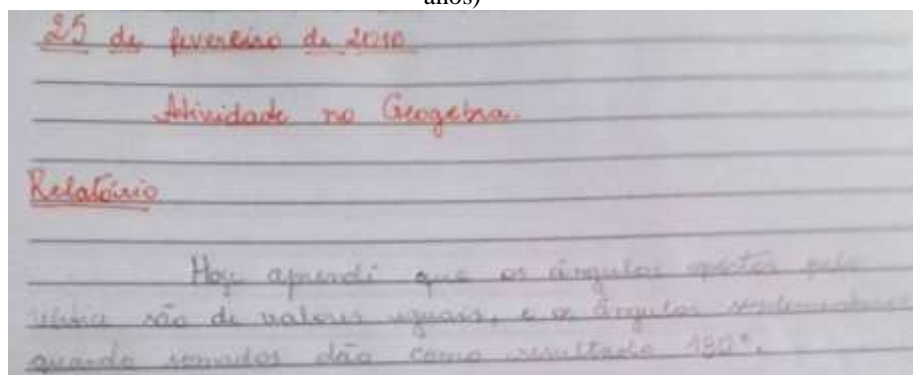 anos)
25 de fevereiro de 2010
Atividade no Geogebra.
Relatório
Hoje aprendi que os ângulos opostos pelo
vértice são de valores iguais, e os ângulos
quando somados dão como resultado 180°.